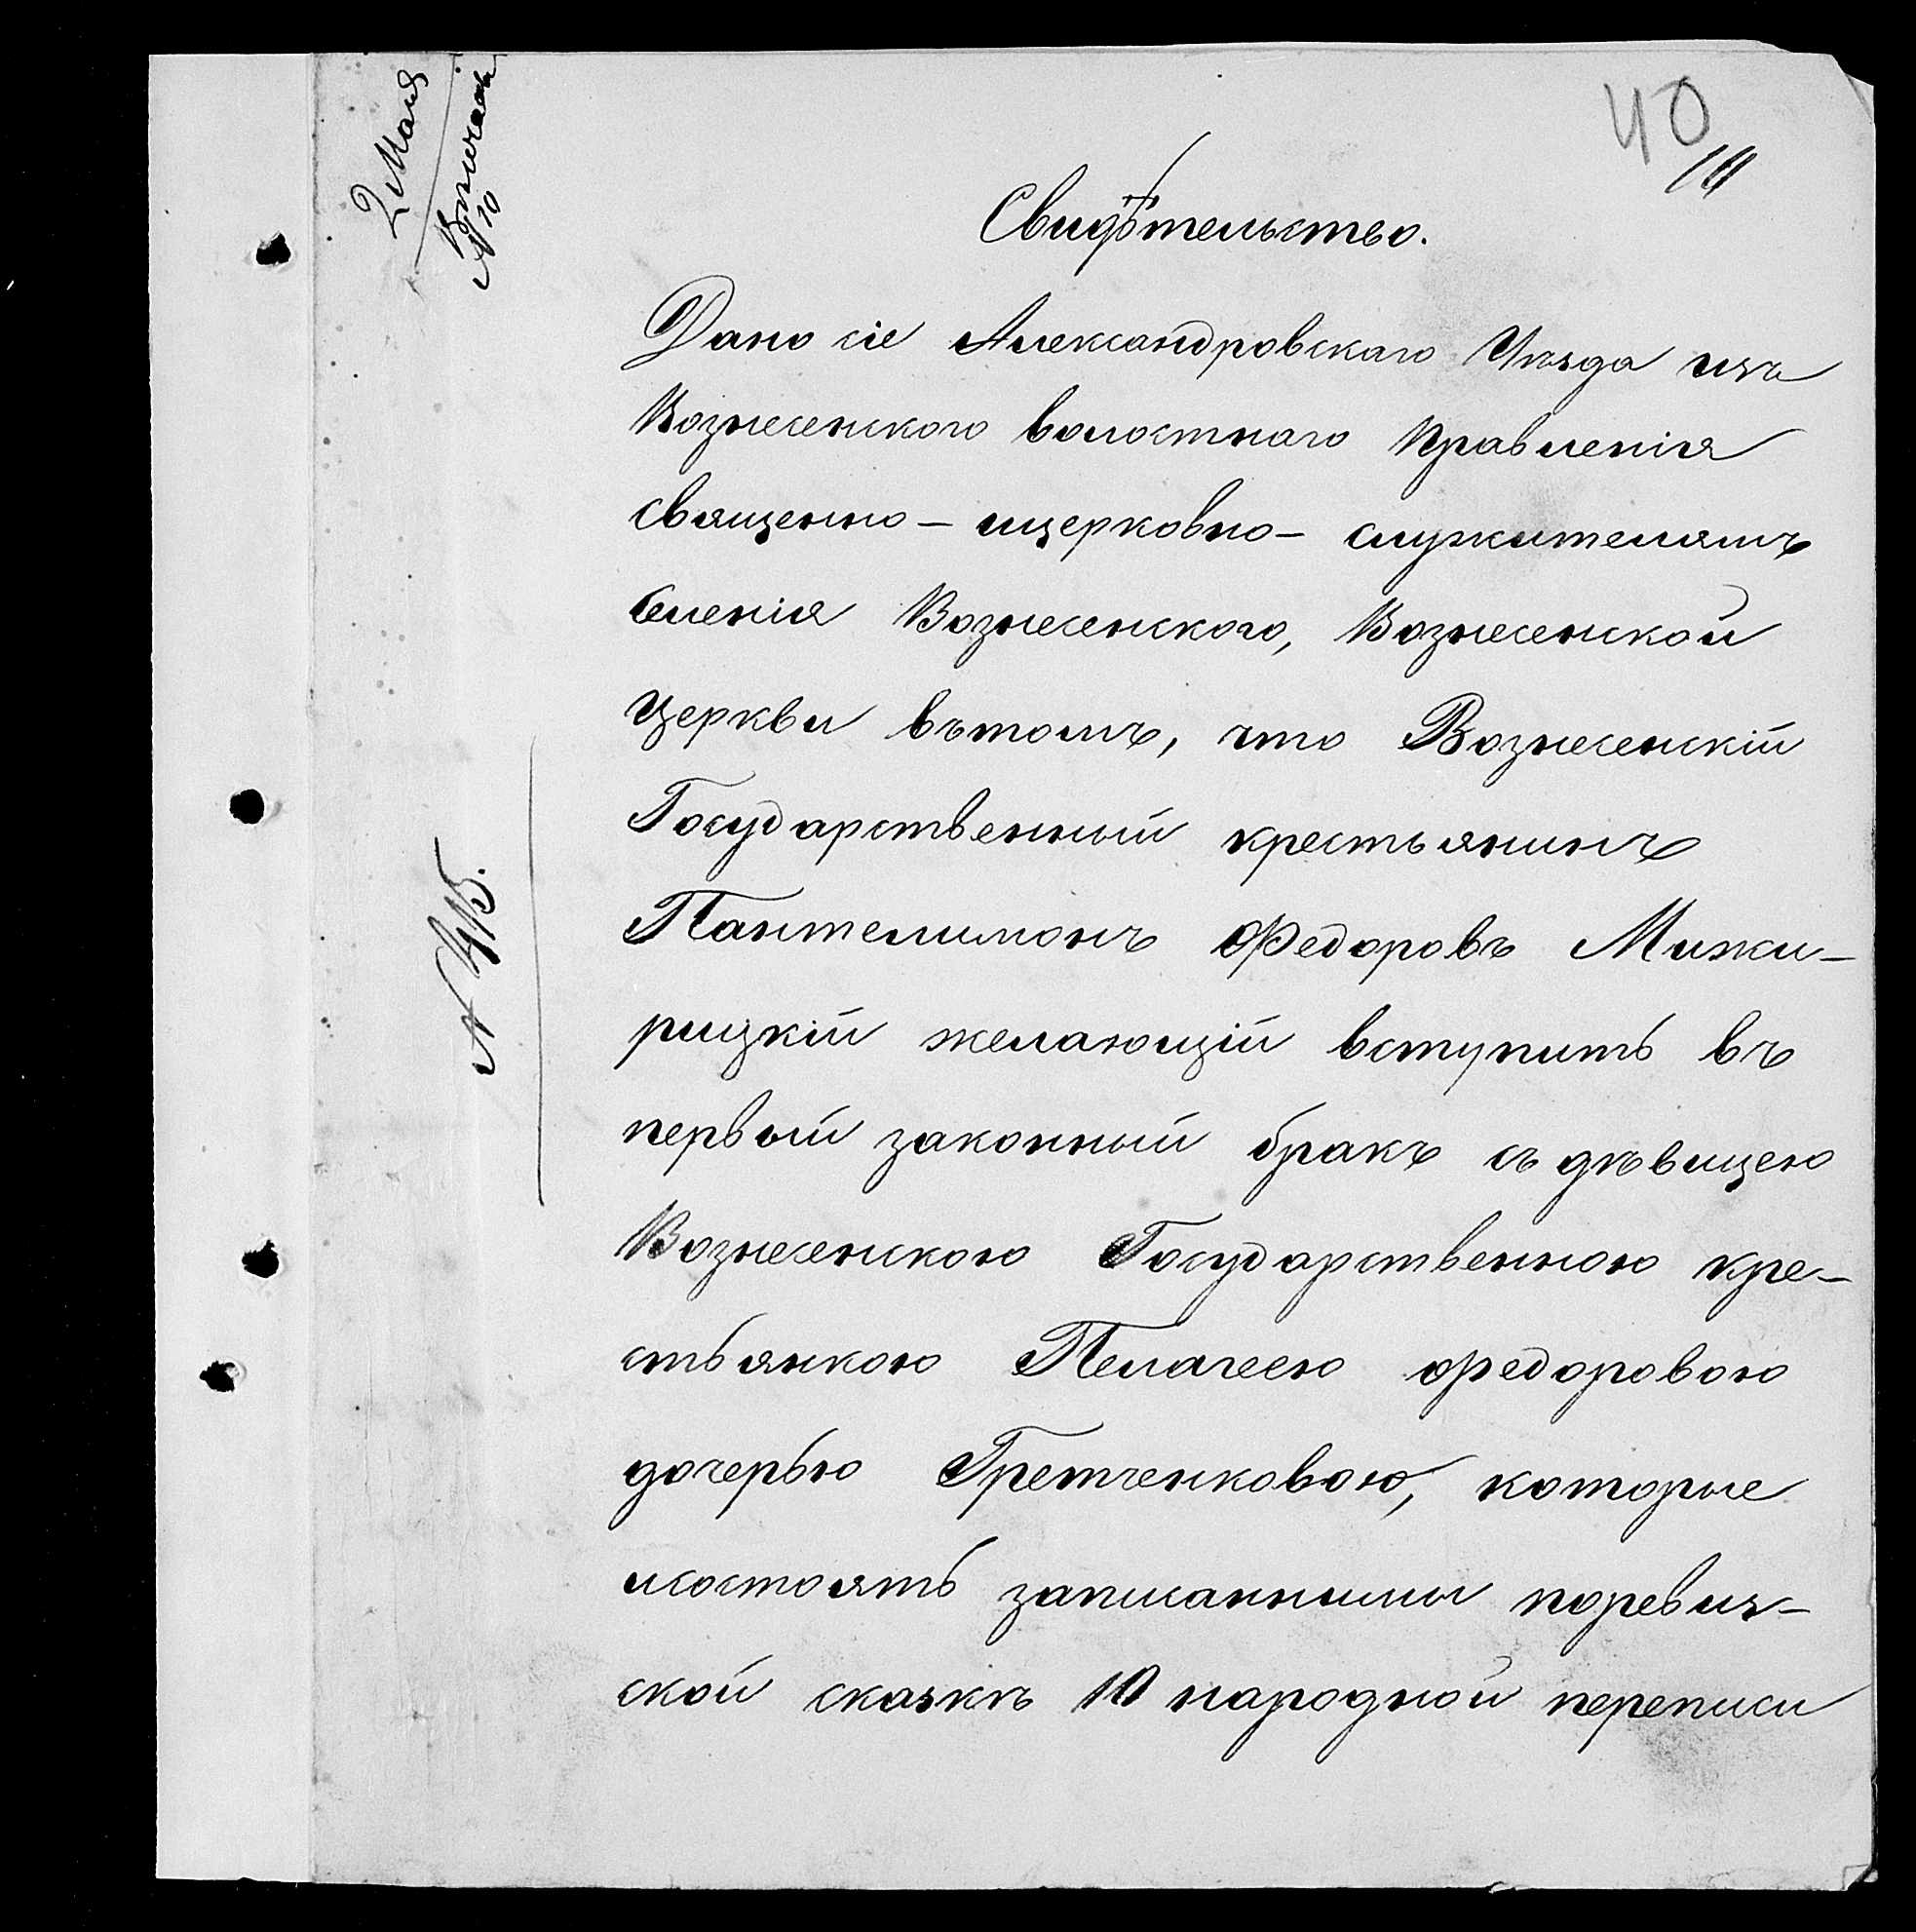 40
2 Мая
№ 10
№ 415.
Свидѣтельство.
Дано сіе Александровскаго Уѣзда изъ
Вознесенского волостнаго правленія
священно – ицерковно – служителямъ
селенія Вознесенского, Вознесенской
церкви вътомъ, что Вознесенскій
Государственный крестьянинъ
Пантелимонъ Федоровъ Мижи–
рицкій желающій вступить въ
первый законный бракъ съ дѣвицею
Вознесенскою Государственною кре–
стьянкою Пелагеею Федоровою
дочерью Гретченковою, которые
исостоятъ записанными поревиз–
ской сказкѣ 10 народной переписи